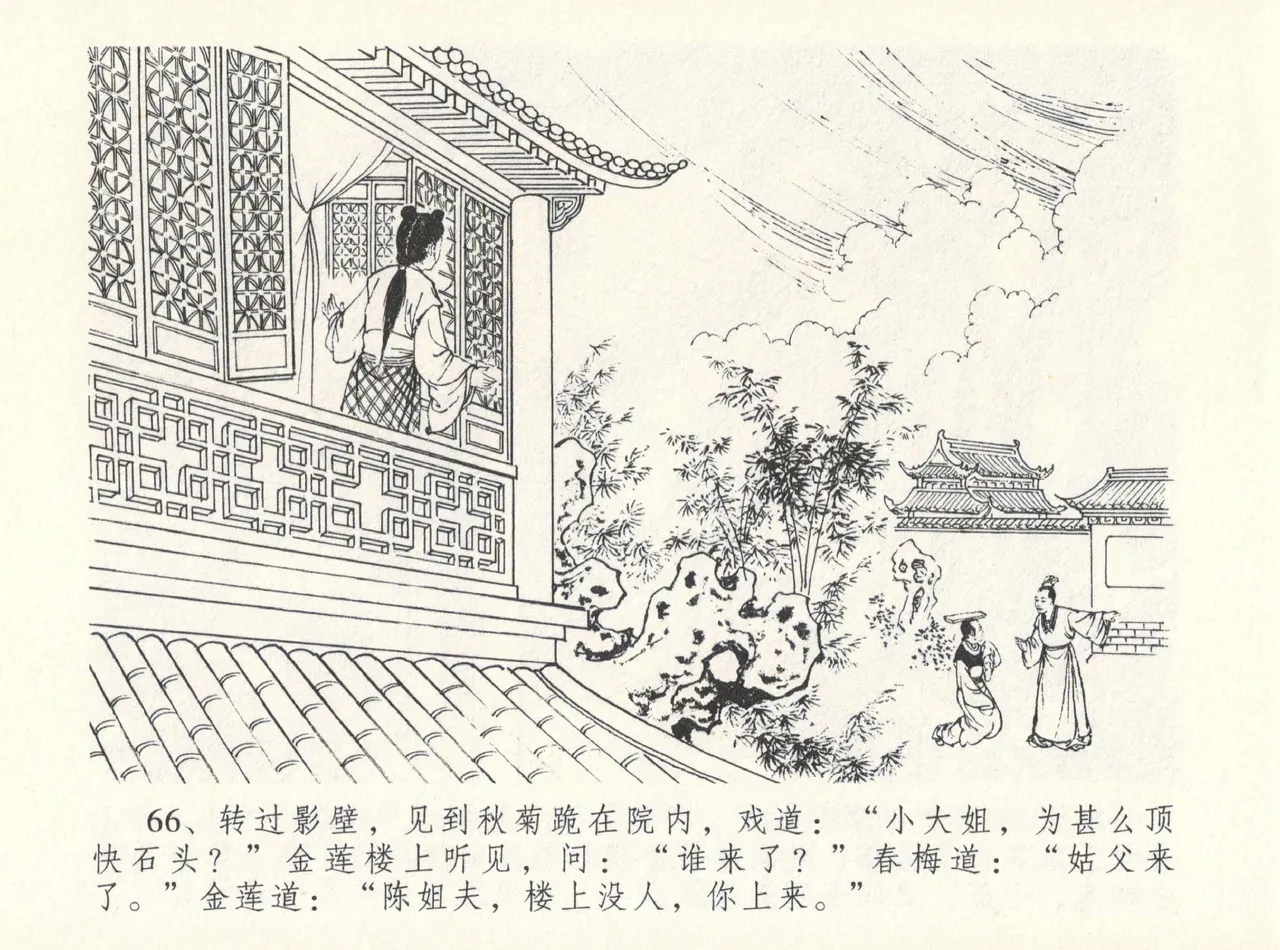 66、转过影壁，见到秋菊跪在院内，戏道：“小大姐，为甚么顶
快石头？”金莲楼上听见，问：“谁来了？”春梅道：“姑父来
了。”金莲道：“陈姐夫，楼上没人，你上来。”